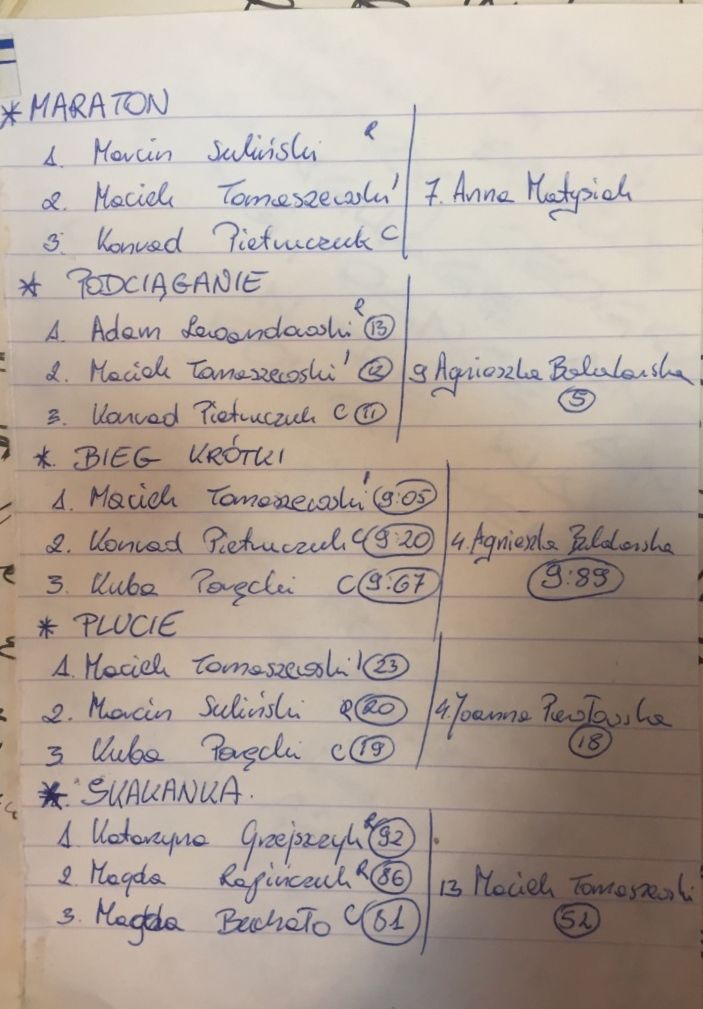 * MARATON
1. Marcin Suliński R
2. Maciek Tomaszewski I 7. Anna Matysiak
3. Konrad Pietruczuk C
* PODCIĄGANIE
1. Adam Lewandowski R 13
2. Maciek Tomaszewski I 12 9 Agnieszka Bakalarska
3. Konrad Pietruczuk C 11 5
* BIEG KRÓTKI
1. Maciek Tomaszewski I 9:05
2. Konrad Pietruczuk C 9:20 4. Agnieszka Bakalarska
3. Kuba Paręcki C 9:67 9:89
* PLUCIE
1. Maciek Tomaszewski I 23
2. Marcin Suliński R 20 4. Joanna
3 Kuba Paręcki C 19 18
* SKAKANKA.
1 Katarzyna Grzejszczyk R 92
2. Magda R 86 13 Maciek Tomaszewski
3. Magda Buchało C 81 52